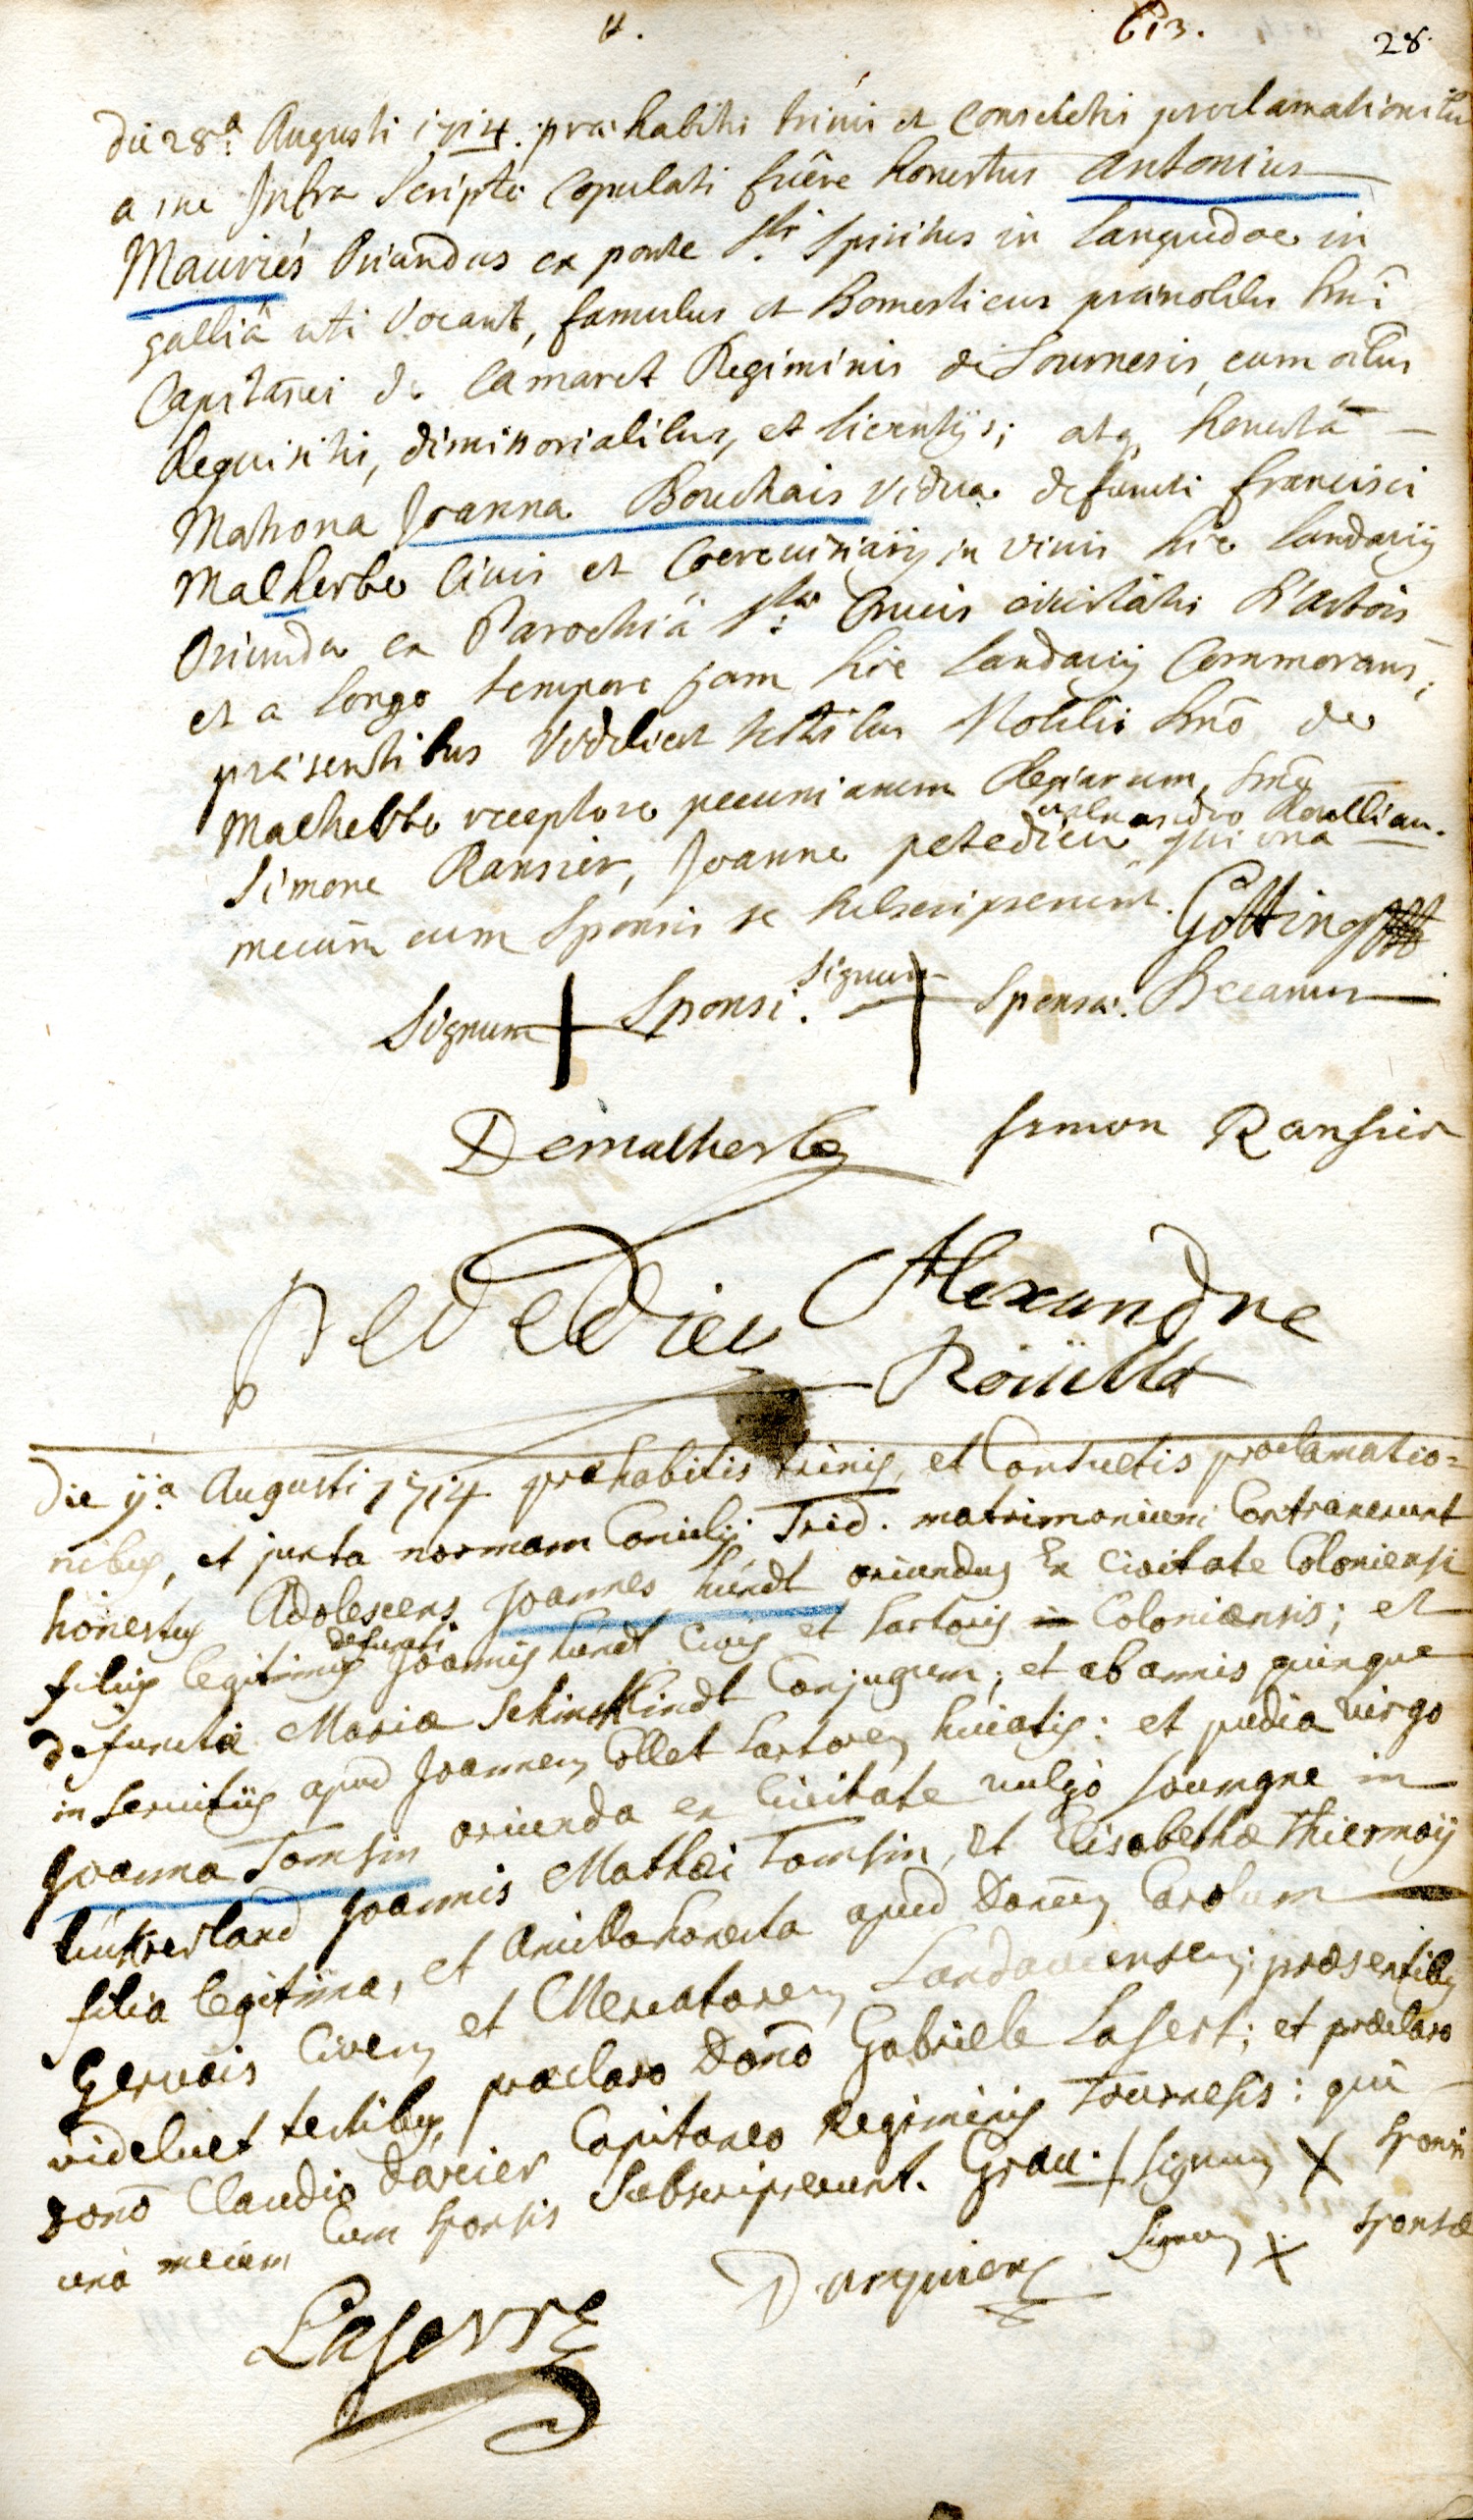 4. 613. 28.
die 28ª Augusti 1714. præhabitis trinis et consuetis proclamationibus
a me Infra Scripto Copulati fuêre honestus Antonius
Mauriés Oriundus ex ponte Sti Spiritus in Languedoc in
galliâ uti Vocant, famulus et Domesticus prænobilis Dni
Capitanei de Camaret Regiminis de Tournesis, cum oibus
Requisitis, dimissorialibus, et licentijs; atq honestâ
Matrona Joanna Bouchais vidua defuncti francisci
Malherbe Civis et Coerevisiarij in vivis hic Landavij
Oriunda ex Parochiâ Stæ Crucis civitatis D'artois
et a longo tempore jam hic Landavij Commorans;
præsentibus Videlicet testibus Nobili Dnô de
Malherbe receptore pecuniarum Regiarum, Dnô
Simone Ransier, Joanne petedieu alexandro Roullian. qui una
mecum cum Sponsis se subscripserunt. Götting
Signum Sponsi. Signum Sponsæ. Decanus
Demalherbe Simon Ransier
Pe de Dieu Alexandre
Roüilla
Die ijª Augusti 1714 præhabitis trinis, et Consuetis proclamatio=
nibus, et juxta normam Concilij Trid. matrimonium Contraxerunt
honestus Adolescens Joannes hündt oriundus Ex Civitate Coloniensi
filius legitimus defuncti Joannis hundt Civis et Sartoris Coloniænsis; et
defunctæ Mariæ Schinckindt Conjugum; et ab annis quinque
in Servitijs apud Joannem Collet Sartorem huiatis: et pudica virgo
Joanna Tomsin oriunda ex Civitate vulgo soumgne in
Lückerland Joannis Mathæi Tomsin, et Elisabethæ Thiermaÿ
filia legitima, et Ancilla honesta apud Domum Carolum
Gervais Civem et Mercatorem Landaviensem: præsentibus
videlicet testibus, præclaro Donô Gabriele Lasert; et præclaro
Donô Claudio Darcier Capitaneo Regiminis Tournesis: qui
unà mecum Cum Sponsis Subscripserunt. Grau. / Signum X Sponsi
Darquier Signum X Sponsæ
Laserre